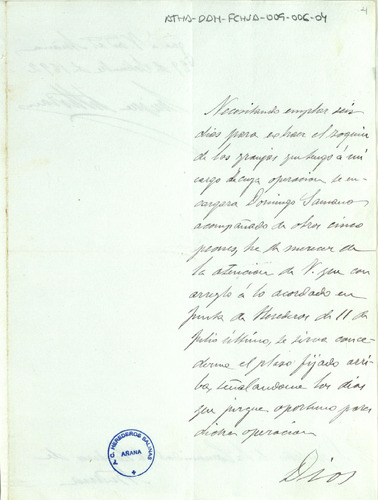 ATHA-DAH-FCHSA-009-006-04
4
Necesitando emplear seis
dias para extraer el
de las granjas que tengo á mi
cargo de cuya operacion se en-
cargara Domingo Samano
acompañado de otros cinco
peones, he de merecer de
la atencion de V. que con
arreglo á lo acordado en
Junta de Herederos de 11 de
Julio último, se sirva conce-
derme el plazo fijado arri-
ba, señalandome los dias
que juzgue oportuno para
dicha operacion
Dios
C. HEREDEROS SALINAS
AÑANA